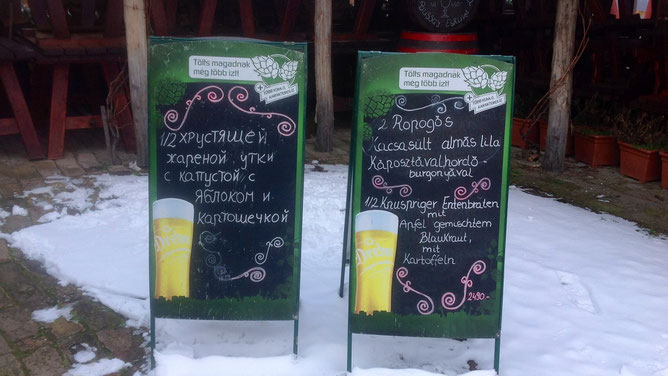 Tölts magadnak
még több ízt!
1/2 ХРУСТЯЩЕЙ
жареной утки
с капустой с
ЯБЛОКОМ и
КАРТОШЕЧКОЙ
Tölts magadnak
még több ízt!
2 Ropogós
Kacsasült almás lila
Káposztávalhordó-
burgonyával
1/2 Knuspriger Entenbraten
mit
Apfel gemischtem
Blaukraut,
mit
Kartoffeln
2490.-